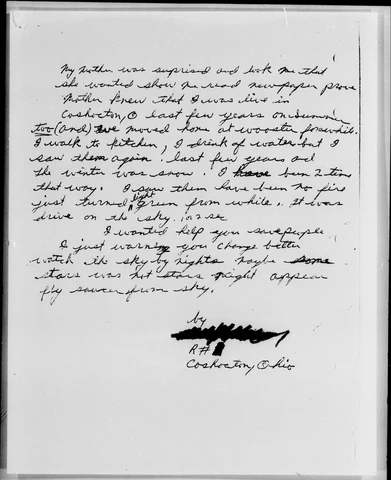 My mother was suprised and look me that
she wanted show me read newpaper prove
Mother knew that I was live in
Coshocton, O last few years on summer
too (and) we moved home at wooster for while.
I walk to kitchen, I drink of water but I
saw them again. last few years and
the winter was snow. I have been 2 time
that way. I saw them have been no fire
just turned light green from while.. It was
drive on the sky. in 2 sec
I wanted help you save people
I just warning you change better
watch the sky by nights maybe some
stars was not stars might appear
fly saucer from sky.
by
R#
Coshocton, Ohio